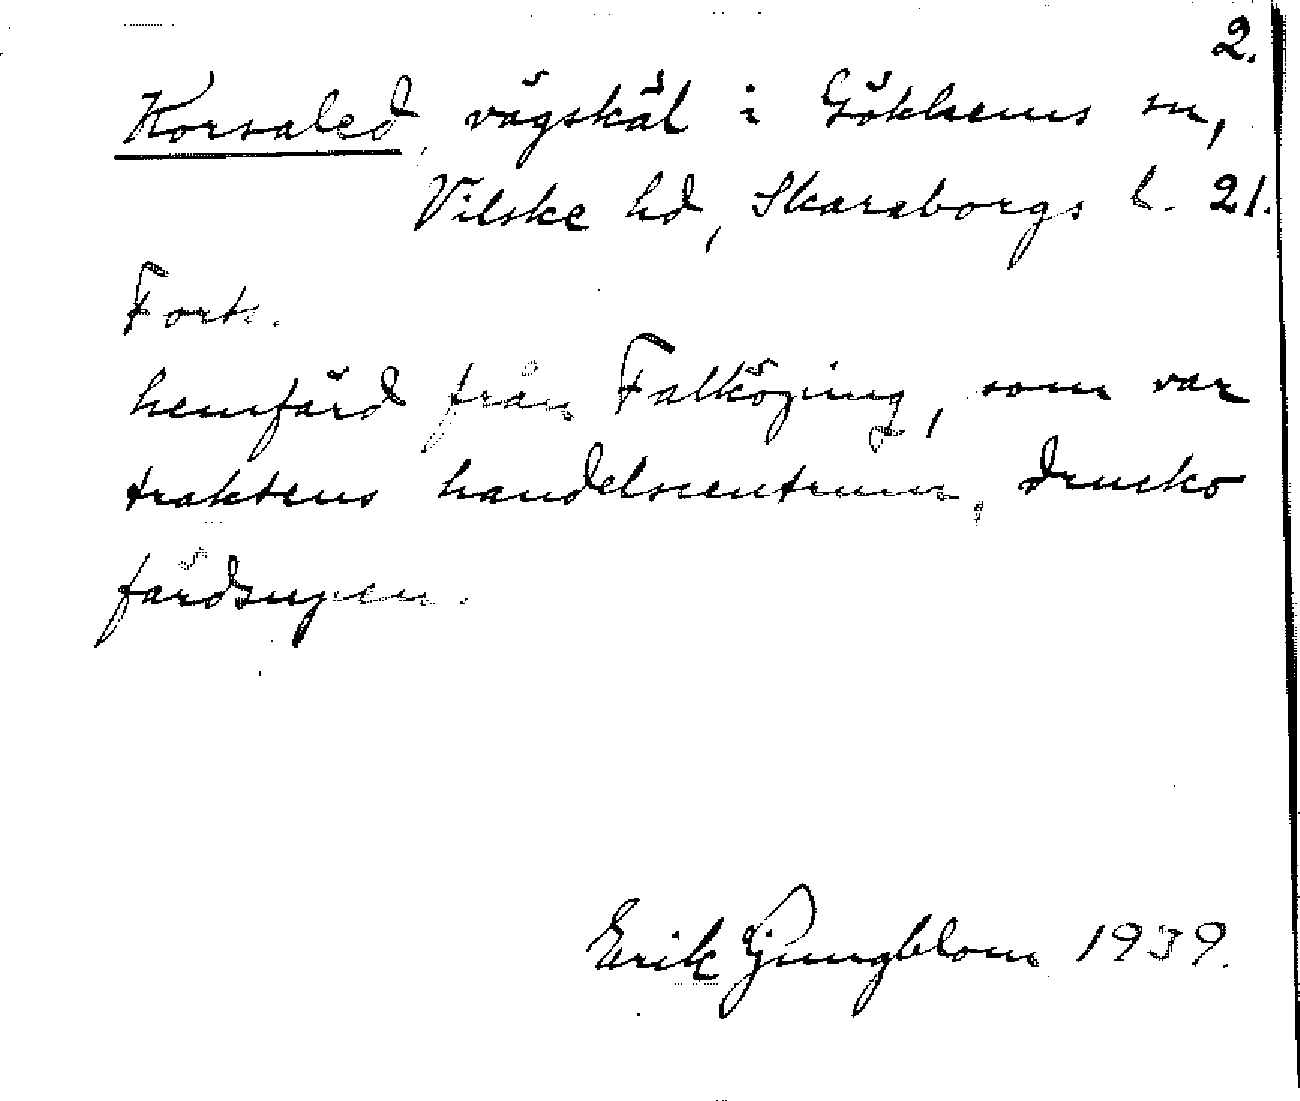 2.
Korsaled, vägskäl i Gökhems sn,
Vilske hd, Skaraborgs l. 21.
Forts.
hemfärd från Falköping, som var
traktens handelscentrum, drucko
färdsupen.
Erik Ljungblom 1939.